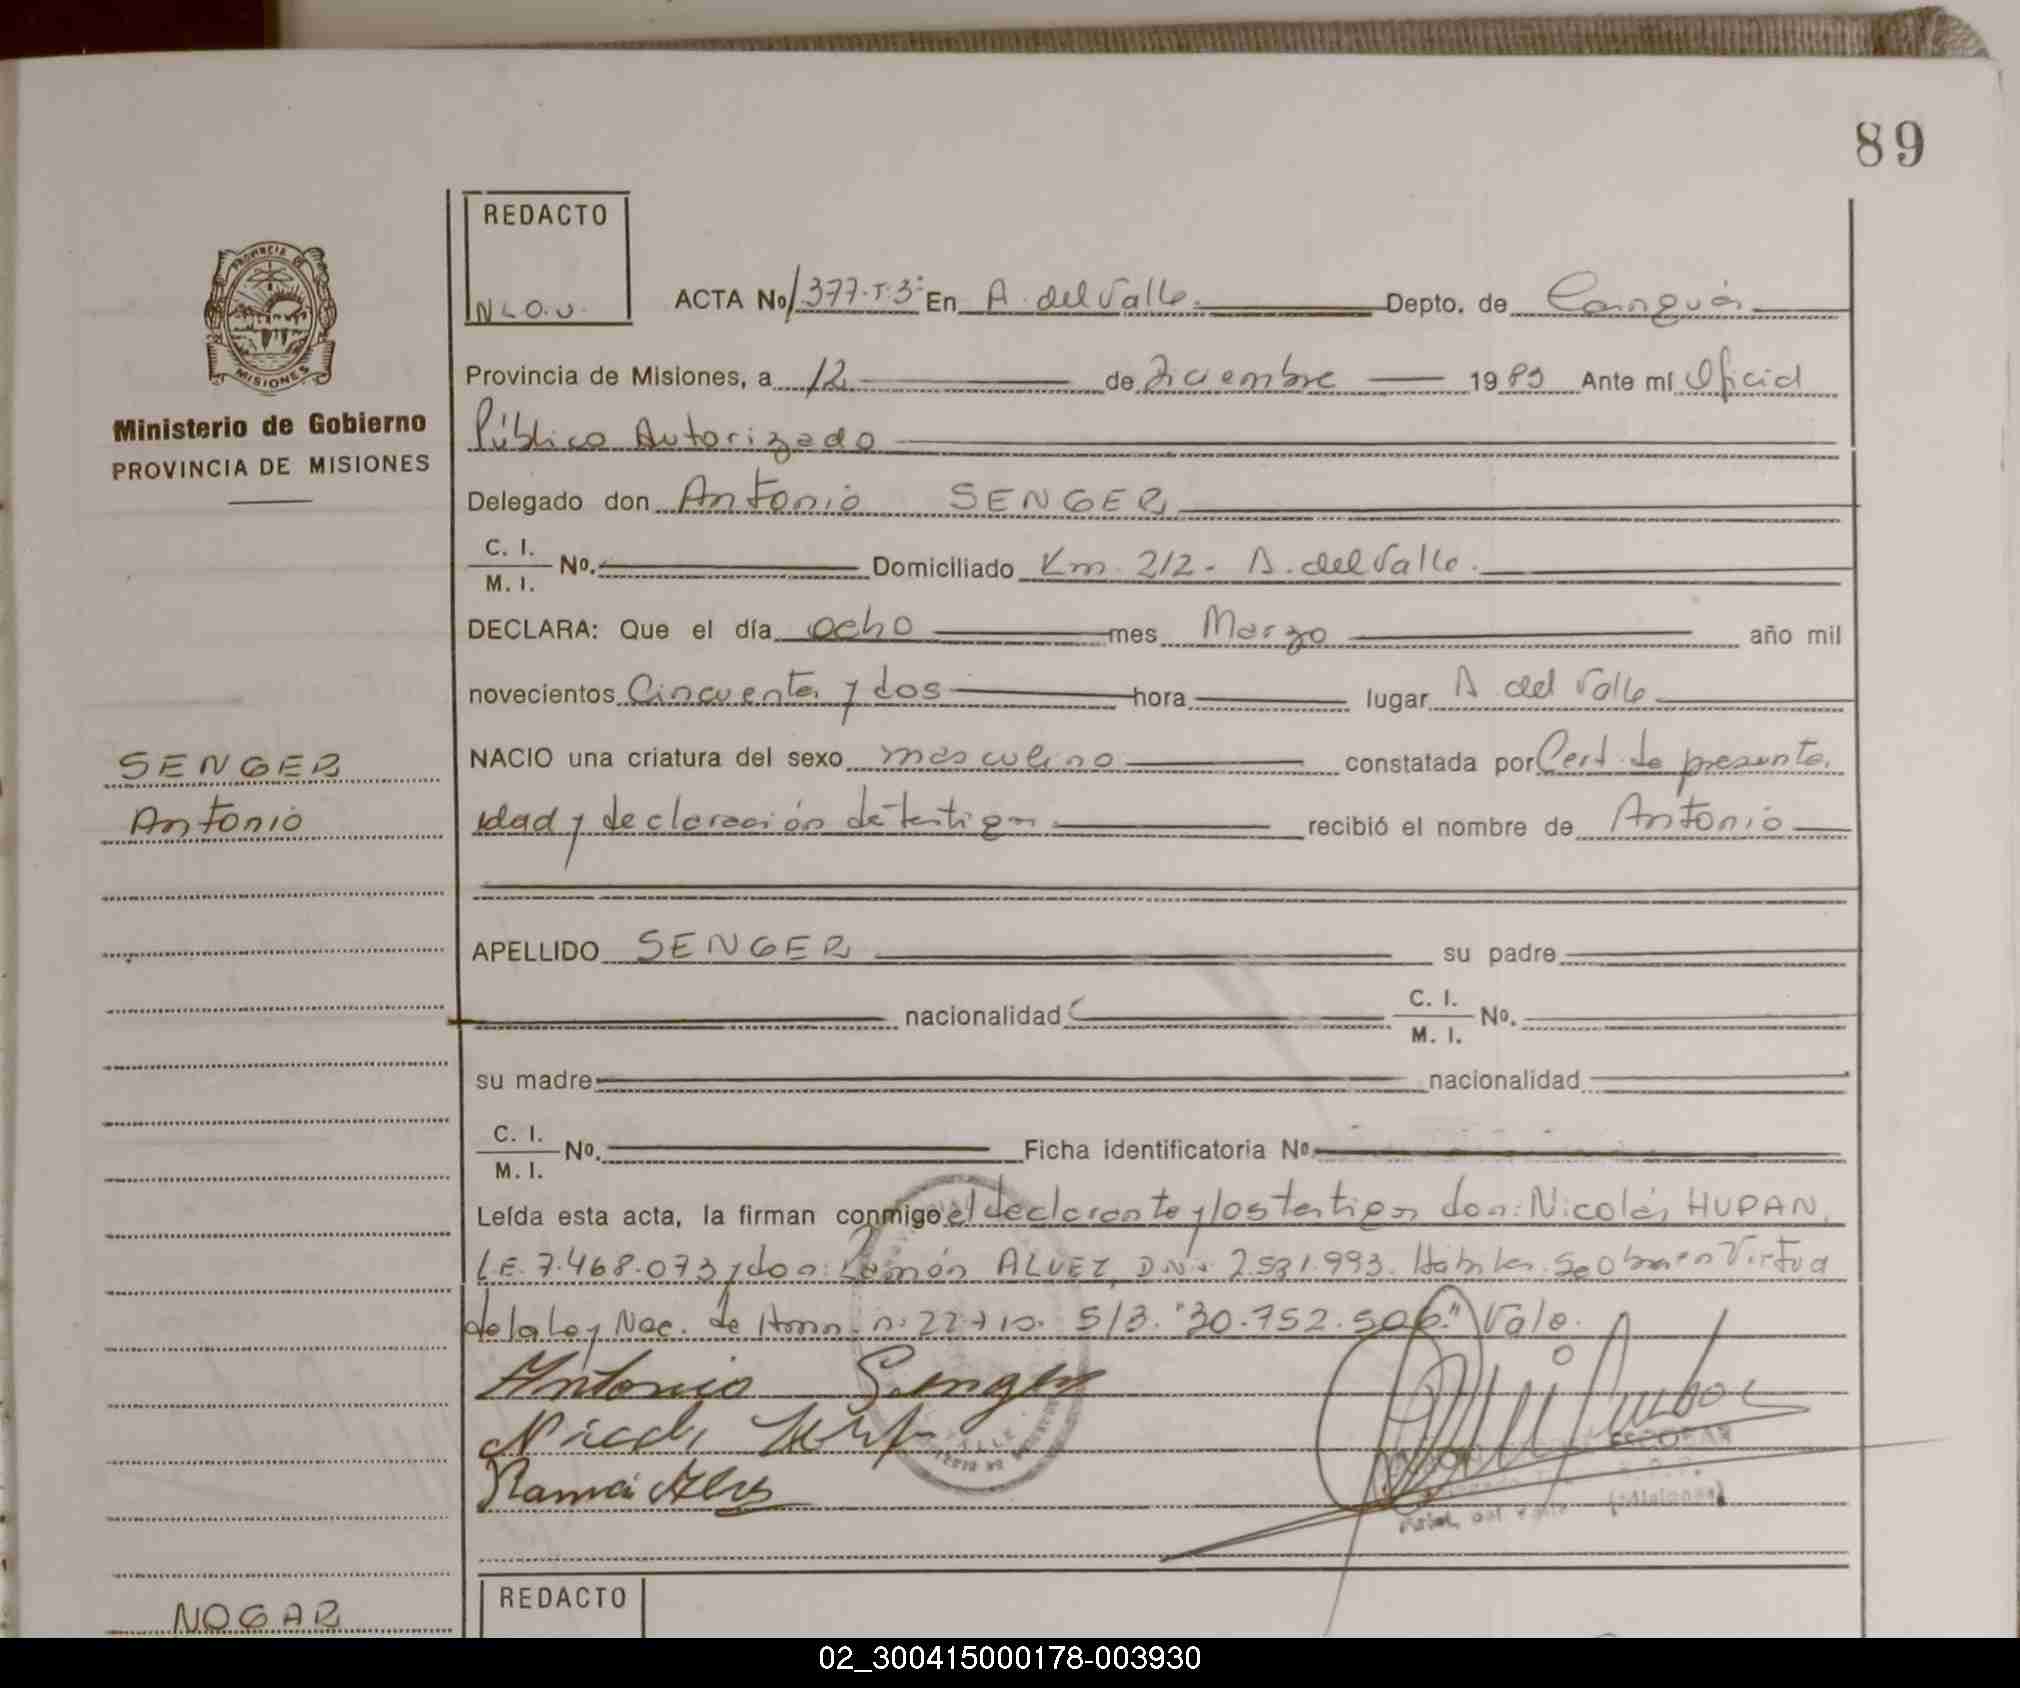 89
REDACTO
N.L.O.U.
ACTA No 377.T.3º En A. del Valle. Depto. de Cainguás
Provincia de Misiones, a 12 de Diciembre 1989 Ante mí Oficial
Público Autorizado
PROVINCIA DE
MISIONES
Ministerio de Gobierno
PROVINCIA DE MISIONES
Delegado don Antonio SENGER
C. I.
M. I.
No. Domiciliado Km. 212 - A. del Valle.
DECLARA: Que el día ocho mes Marzo año mil
novecientos Cincuenta y dos hora lugar A del Valle
NACIO una criatura del sexo masculino constatada por Cert. de presunta
SENGER
Antonio
edad y declaración de testigos recibió el nombre de Antonio
APELLIDO SENGER su padre
nacionalidad C. I.
M. I.
No.
su madre nacionalidad
C. I.
M. I.
No. Ficha identificatoria No
Leída esta acta, la firman conmigo el declarante y los testigos don: Nicolás HUPAN,
L.E. 7.468.073 y don: Ramón ALVEZ, D.N.I. 2.581.993. Hábiles. Se Obra en Virtud
de la Ley Nac. de Amn. n: 22710. S/B. "30.752.506." Vale.
Antonio Senger
Ramón Alvez
ESCOBAR
REDACTO
NOGAR
02_300415000178-003930